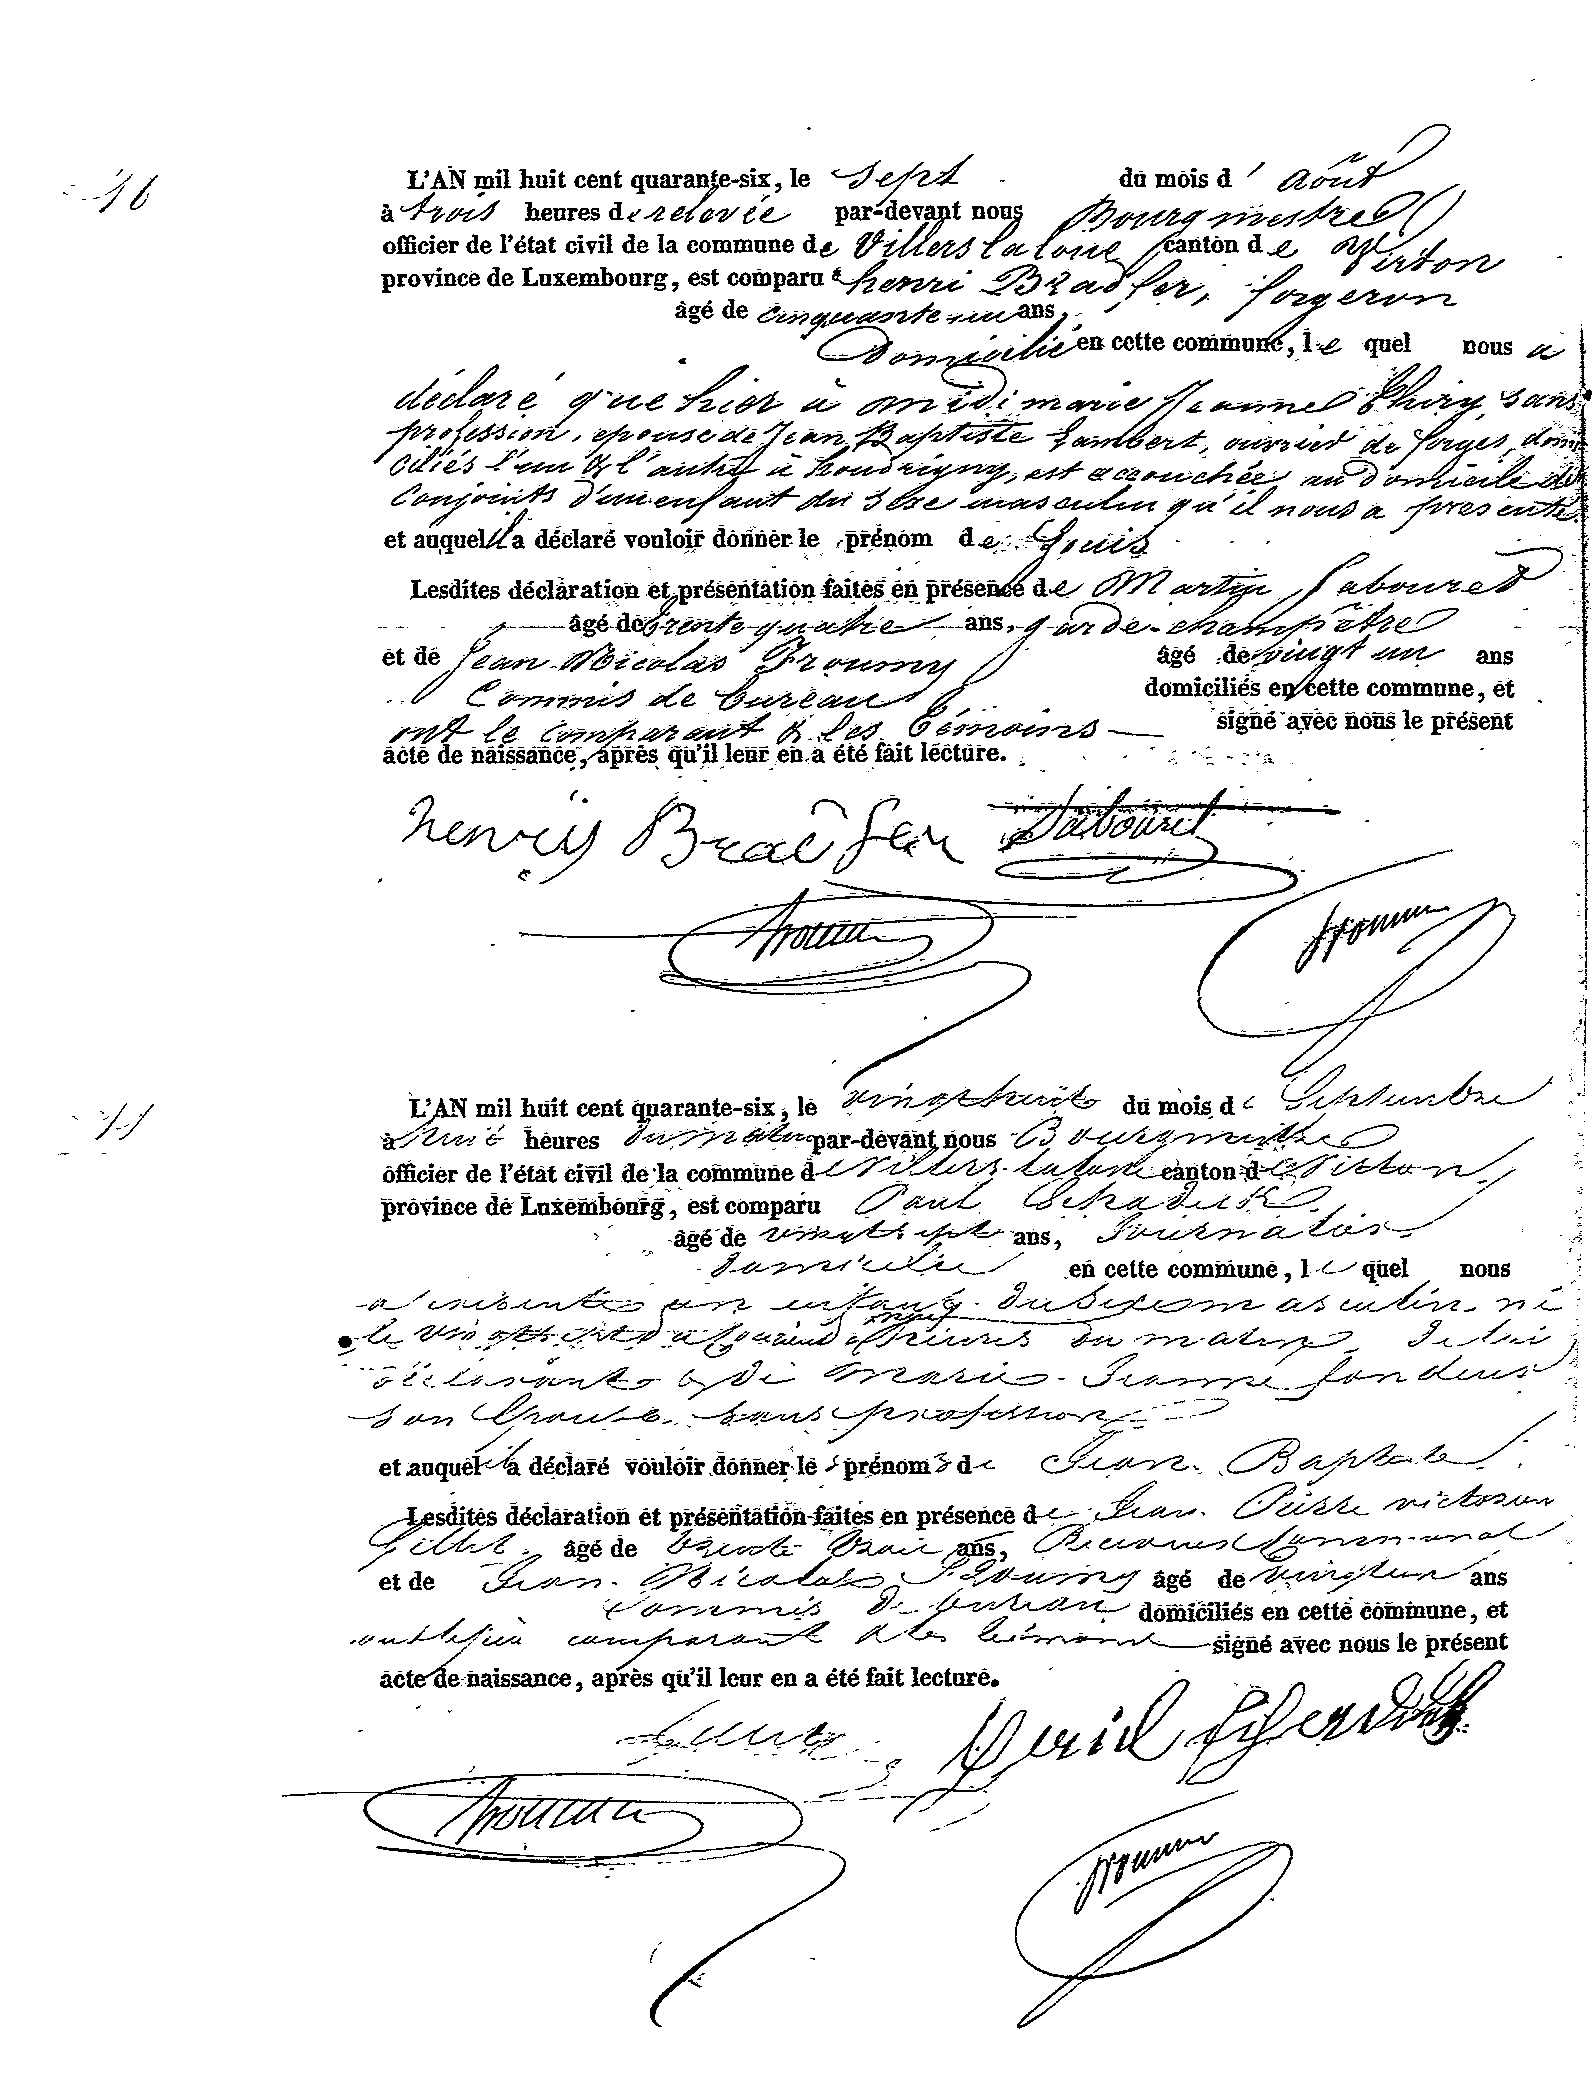 16
L'AN mil huit cent quarante-six, le sept du mois d' Août
à trois heures de relevée par-devant nous Bourgmestre
officier de l'état civil de la commune de Villers la loue canton de Virton
province de Luxembourg, est comparu henri Bradfer, forgeron
âgé de cinquante-un ans,
Domicilié en cette commune, le quel nous a
déclaré que hier à midi marie Jeanne Thiry, sans
profession, epouse de Jean Baptiste Lambert, ouvrier de forges, domi
ciliés l'un & l'autre à houdrigny, est accouchée au domicile des
Conjoints d'un enfant du sexe masculin qu'il nous a presenté
et auquel il a déclaré vouloir donner le prénom de Louis
Lesdites déclaration et présentation faites en présence de Martin Labouret
âgé de trente quatre ans, garde-champêtre
et de Jean Nicolas Froumy âgé de vingt un ans
Commis de bureau domiciliés en cette commune, et
ont le comparant & les témoins signé avec nous le présent
acte de naissance, après qu'il leur en a été fait lecture.
henry Bradfer Labouret
L'AN mil huit cent quarante-six, le vingt huit du mois de Septembre
à huit heures du matin par-devant nous Bourgmestre
officier de l'état civil de la commune de Villers-laloue canton de Virton,
province de Luxembourg, est comparu Paul
âgé de vingt sept ans, Journalier
domicilié en cette commune, le quel nous
a presenté un enfant du Sexe masculin né
le vingt sept du courant à heures du matin, de lui
déclarant & de Marie-Jeanne
son Epouse sans profession
et auquel il a déclaré vouloir donner le s prénom s de Jean Baptiste
Lesdites déclaration et présentation faites en présence de Jean Pierre victorien
Gillet âgé de trente trois ans, Receveur Communal
et de Jean Nicolas Froumy âgé de vingt un ans
Commis de bureau domiciliés en cette commune, et
comparant & les témoins signé avec nous le présent
acte de naissance, après qu'il leur en a été fait lecture.